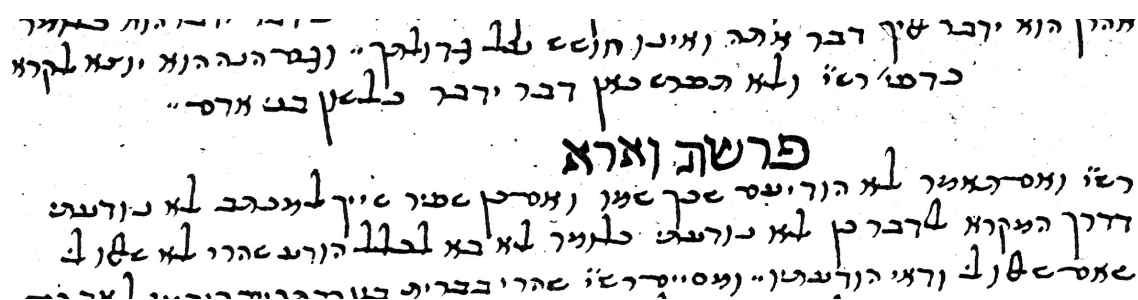 אהרן הוא ידבר איך דבר אתה ואינו חושש על גדולתך״ וגם הנה הוא יוצא לקרא
כדפי׳ רש״י ולא תפרש כאן דבר ידבר כלשון בני אדם״
פרשת וארא
רש״י ואם תאמר לא הודיעם שכך שמו ואם כן שפיר שייך למכתב לא נודעתי
דדרך המקרא לדבר כן לא נודעתי כלומר לא בא לכלל הודע שהרי לא שאלו לי
שאם שאלו לי ודאי הודעתין״ ומסיים רש״י שהרי בברית